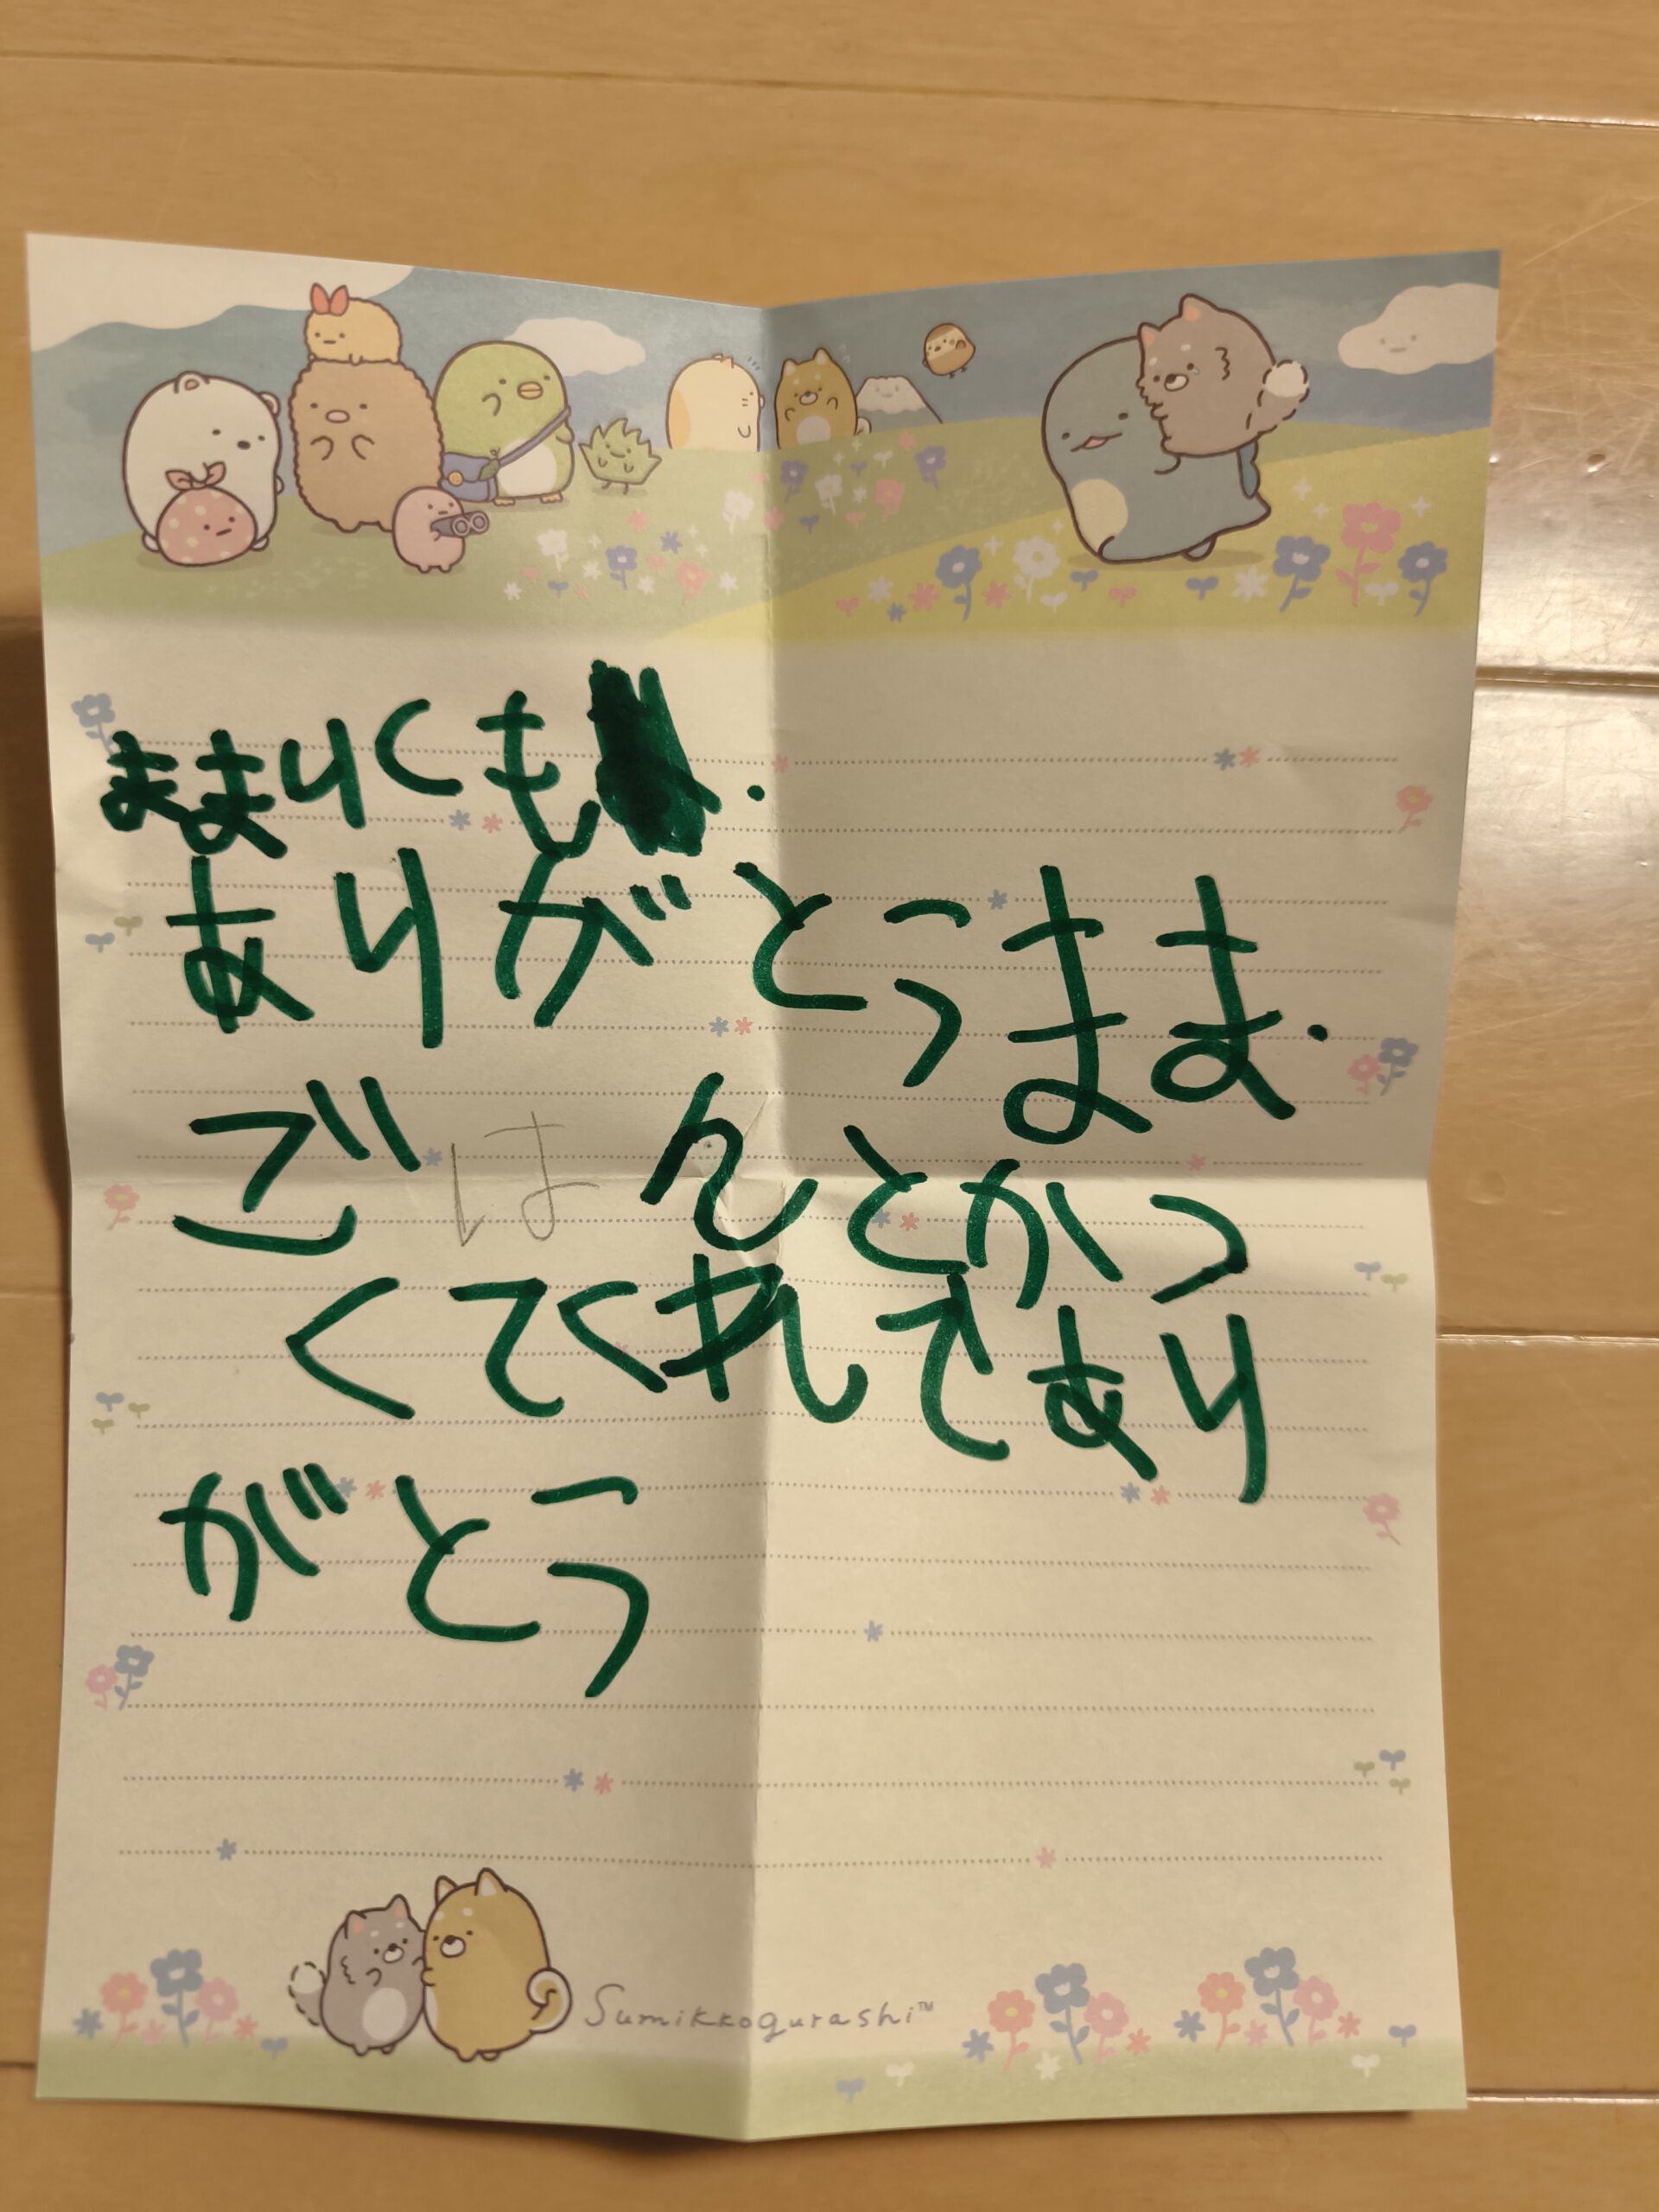 ままいくも.
ありがとうまま.
ごはんとかつ
くてくれてあり
がとう
Sumikkogurashi™